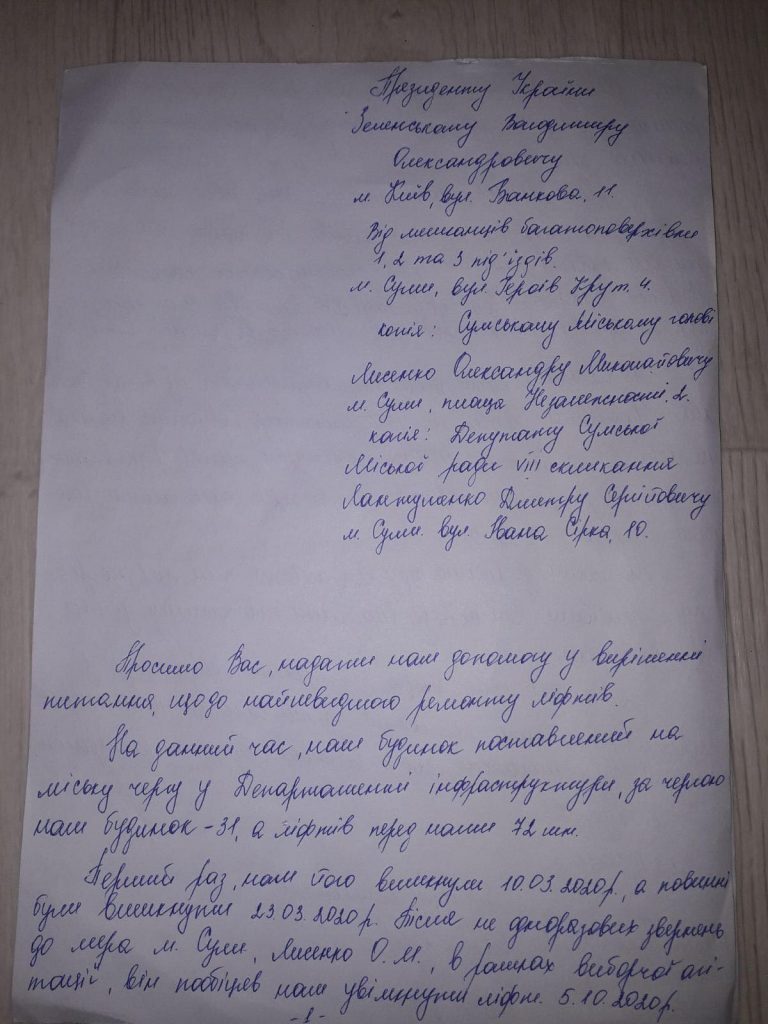 Президенту України
Зеленському Володимиру
Олександровичу
м. Київ, вул. Банкова, 11.
Від мешканців багатоповерхівки
1, 2 та 3 під'їздів.
м. Суми, вул. Героїв Крут. 4.
копія: Сумському Міському голові
Лисенко Олександру Миколайовичу
м. Суми, площа Незалежності, 2.
копія: Депутату Сумської
Міської ради VIII скликання
Лантушенко Дмитру Сергійовичу
м. Суми. вул. Івана Сірка, 10.
Просимо Вас, надати нам допомогу у вирішенні
питання, щодо найшвидшого ремонту ліфтів.
На данний час, наш будинок поставлений на
міську чергу у Департаменті інфраструктури, за чергою
наш будинок - 31, а ліфтів перед нами 72 шт.
Перший раз, нам його вимкнули 10.03.2020р, а повинні
були вимкнути 23.03.2020р. Після не одноразових звернень
до мера м. Суми, Лисенко О.М., в рамках виборчої агі-
тації, він пообіцяв нам увімкнути ліфт. 5.10.2020р.
-1-